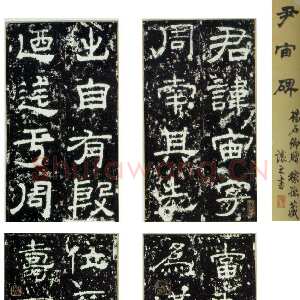 尹宙碑
君諱宙字
周南其先
出自有殷
迺迄于周
當
為
位
壽